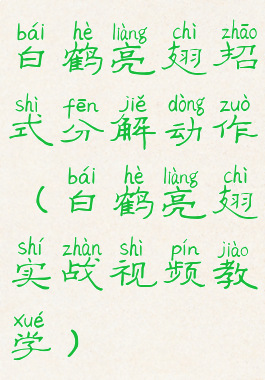 bái hè liàng chì zhāo
白鹤亮翅招
shì fēn jiě dòng zuò
式分解动作
bái hè liàng chì
（白鹤亮翅
shí zhàn shì pín jiào
实战视频教
xué
学）